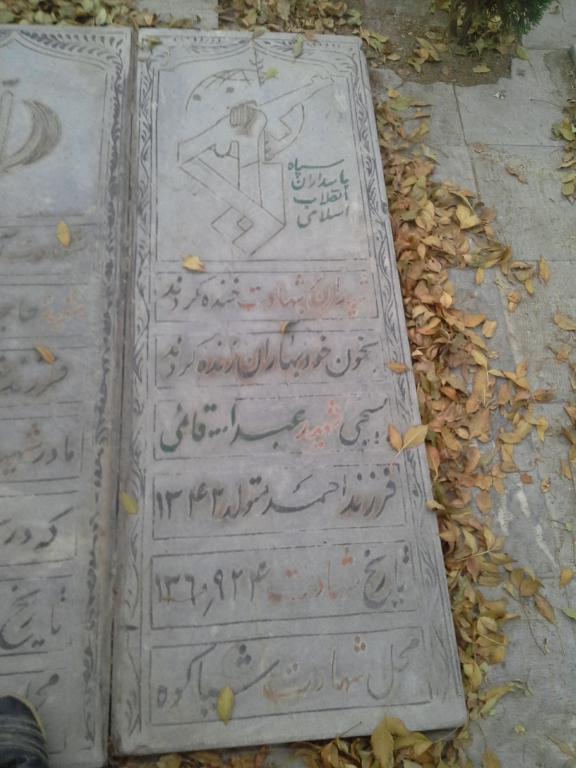 سپاه
پاسداران
انقلاب
اسلامی
بشهادت خنده کردند
بخون خود بهاران زنده کردند
بسیجی شهید عبدالله قائمی
فرزند احمد متولد ۱۳۴۲
تاریخ شهادت ۱۳۶۰٫۹٫۲۴
محل شهادت شیاکوه
شهید حاج
فرزند
مادر شهید
که در
تاریخ